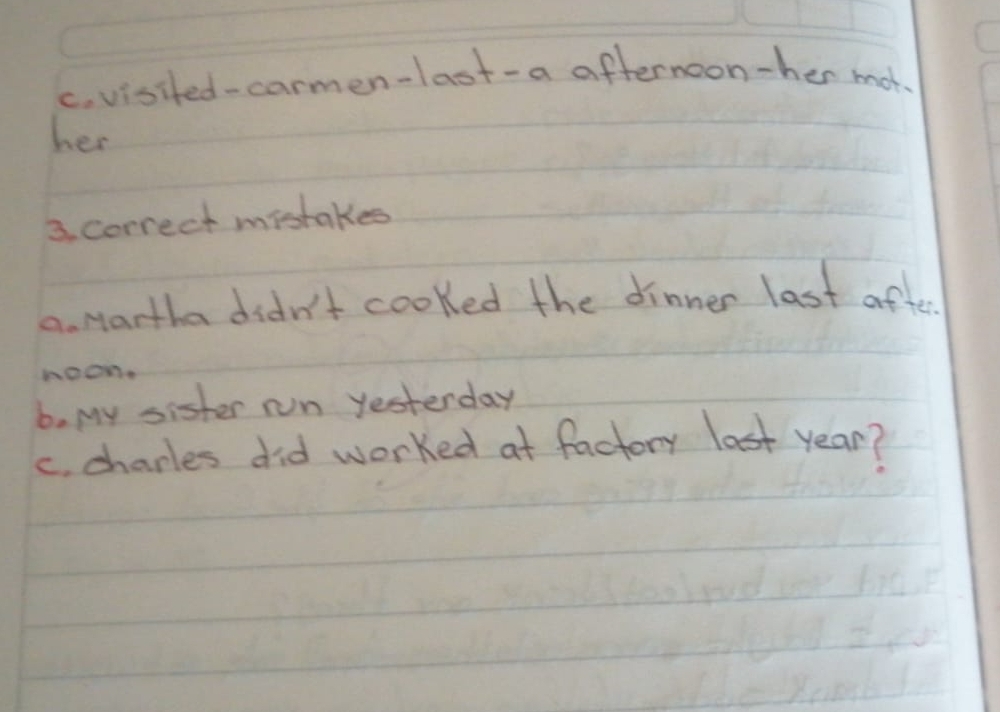 c. visited-carmen-last-a afternoon-her mot-
her
3. correct mistakes
a. Martha didn't cooked the dinner last after-
noon.
b. My sister run yesterday
c. charles did worked at factory last year?